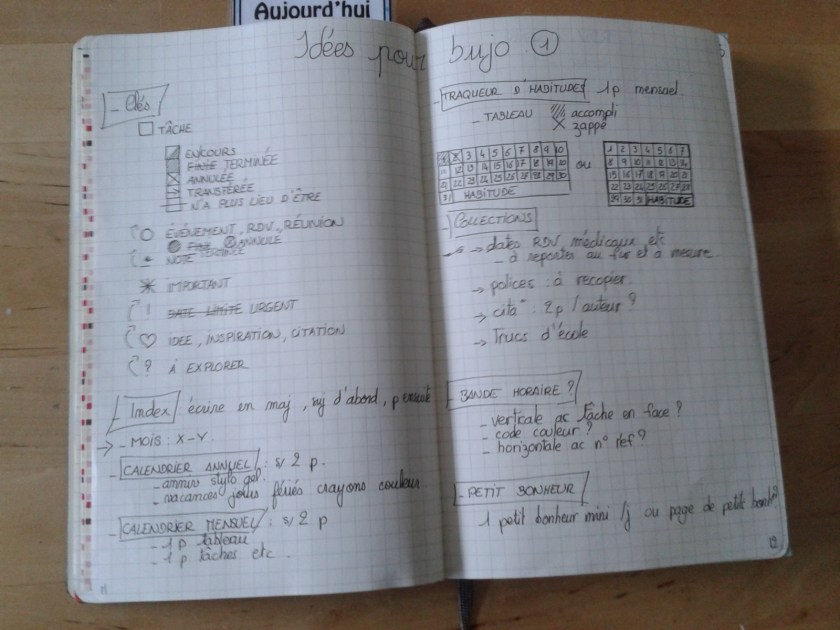 Aujourd'hui
Idées pour bujo 1
- Clés
TÂCHE
EN COURS
FINIE TERMINÉE
ANNULÉE
TRANSFÉRÉE
N'A PLUS LIEU D'ÊTRE
ÉVÉNEMENT, RDV, RÉUNION
FINI ANNULÉ
TERMINÉE
NOTE
IMPORTANT
! DATE LIMITE URGENT
IDÉE, INSPIRATION, CITATION
? À EXPLORER
- Index : écrire en maj, suj d'abord, p ensuite
→ - MOIS : X-Y.
- CALENDRIER ANNUEL : s/ 2 p.
- annivs stylo gel.
- vacances jours fériés crayons couleur
- CALENDRIER MENSUEL : s/ 2 p
- 1 p tableau
- 1 p tâches etc.
11
- TRAQUEUR D'HABITUDES 1p mensuel.
- TABLEAU accompli
zappé
1 2 3 4 5 6 7 8 9 10
11 12 13 14 15 16 17 18 19 20
21 22 23 24 25 26 27 28 29 30
31 HABITUDE
ou
1 2 3 4 5 6 7
8 9 10 11 12 13 14
15 16 17 18 19 20 21
22 23 24 25 26 27 28
29 30 31 HABITUDE
- COLLECTIONS
→ dates RDV médicaux etc
- à reporter au fur et à mesure.
→ polices : à recopier.
→ citaº : 2p / auteur ?
→ Trucs d'école
- BANDE HORAIRE ?
- verticale ac tâche en face ?
- code couleur ?
- horizontale ac n° réf ?
- PETIT BONHEUR
1 petit bonheur mini /j ou page de petits bonh ?
12